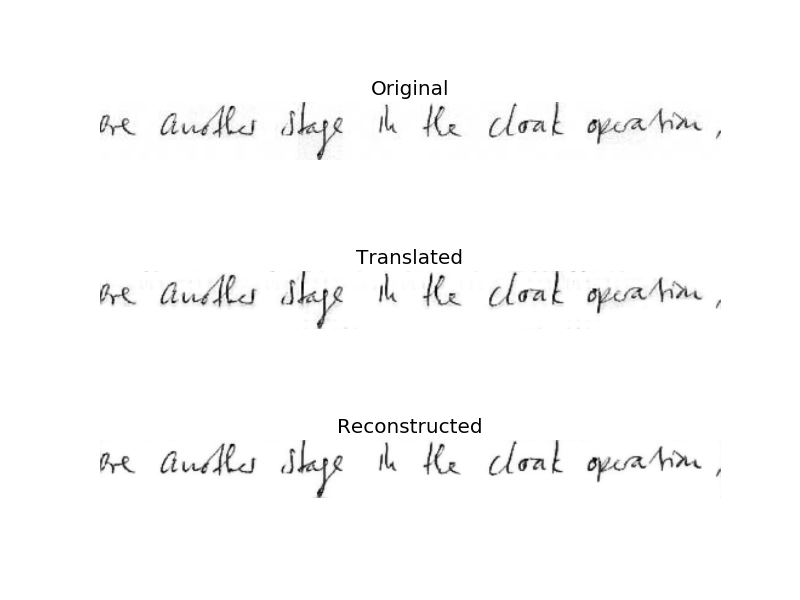 Original
are another stage in the cloak operation ,
Translated
are another stage in the cloak operation ,
Reconstructed
are another stage in the cloak operation ,